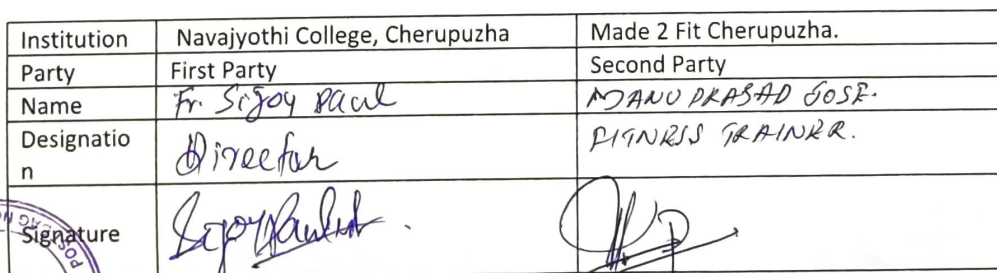 Institution Navajyothi College, Cherupuzha Made 2 Fit Cherupuzha.
Party First Party Second Party
Name Fr. Sijoy Paul MANU PRASAD JOSE.
Designatio
n Director FITNESS TRAINER.
Signature